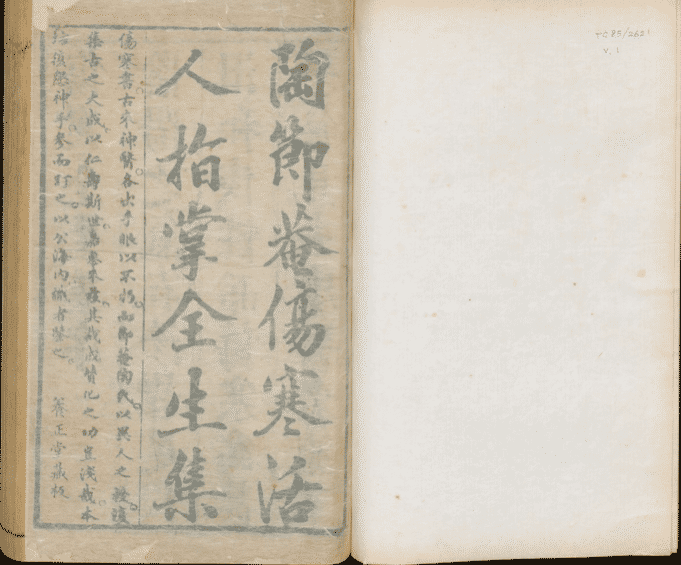 陶節菴傷寒活
人指掌全生集
傷寒書古來神醫各出手眼以不朽而節菴陶氏以異人之授復
集古之大成以仁壽斯世其裁成贊化之功豈淺哉本
神手參而訂之以公海内識者鑒之
養正堂藏板
TC 85/2621
v. 1